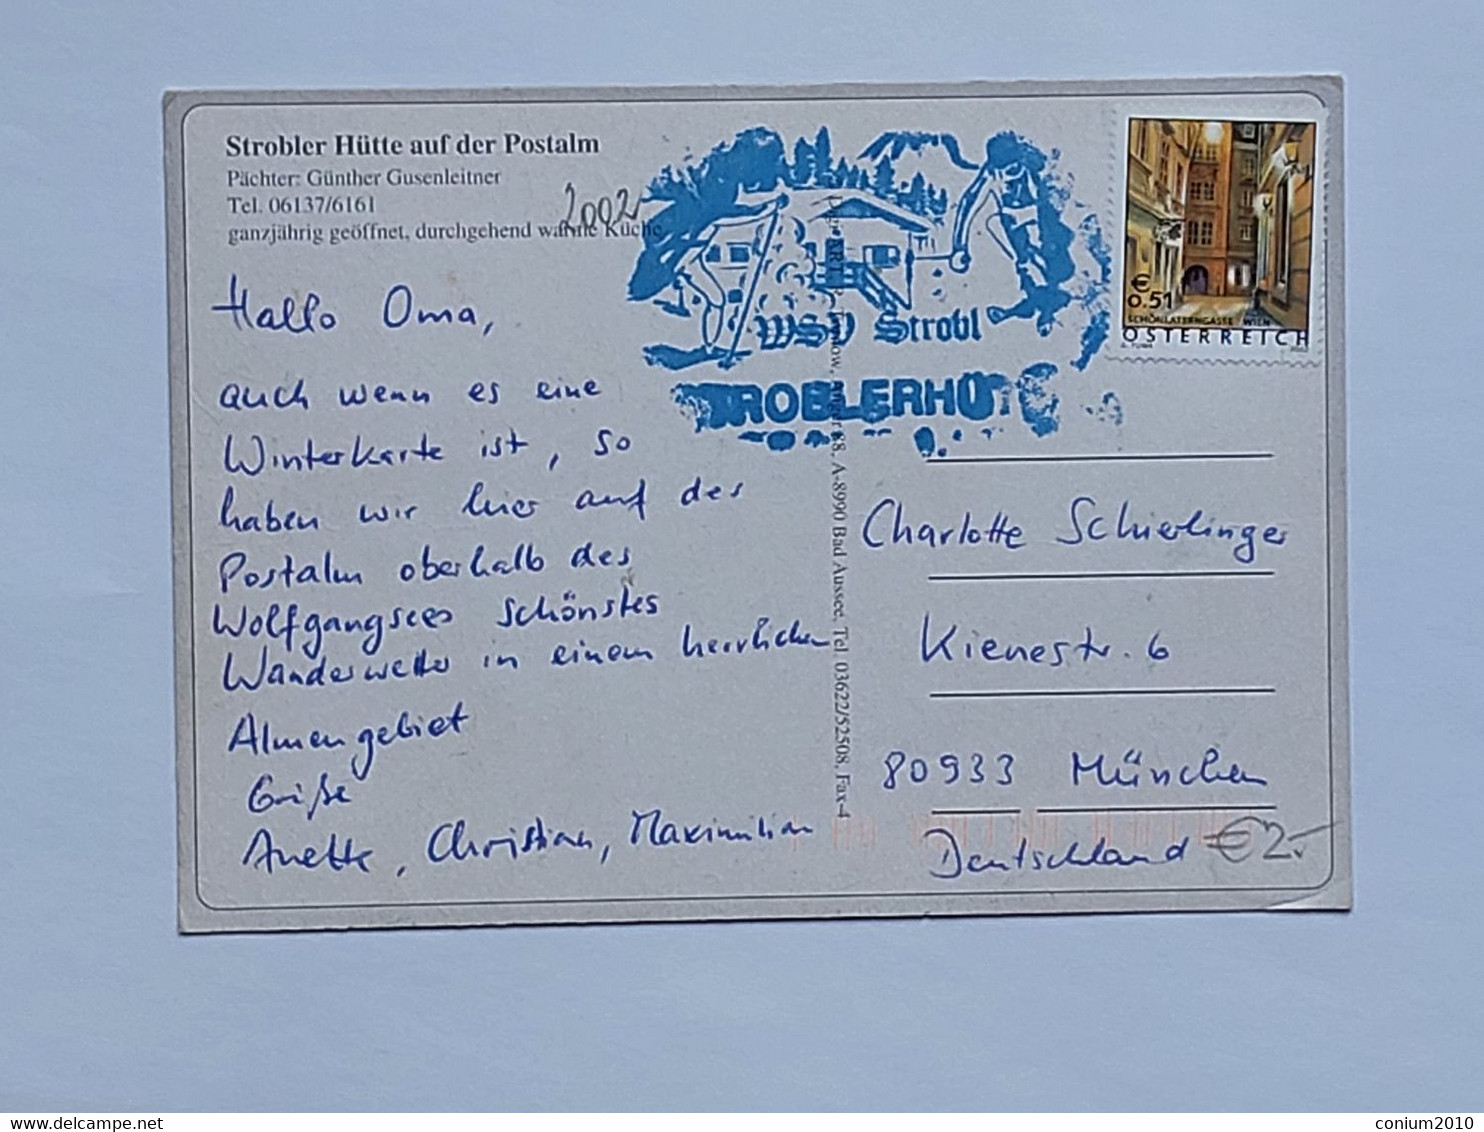 Strobler Hütte auf der Postalm
Pächter: Günther Gusenleitner
Tel. 06137/6161
ganzjährig geöffnet, durchgehend warme Küche
2002
Hallo Oma,
auch wenn es eine
Winterkarte ist, so
haben wir hier auf der
Postalm oberhalb des
Wolfgangsees schönstes
Wanderwetter in einem herrlichen
Almengebiet
Grüße
Anette, Christian, Maximilian
WSV Strobl
STROBLERHÜTTE
88, A-8990 Bad Aussee, Tel. 03622/52508, Fax-4
€
0.51
SCHÖNLATERNGASTE WIEN
ÖSTERREICH
Charlotte Schierlinger
Kienestr. 6
80933 München
Deutschland
€2.-
delcampe.net
conium2010